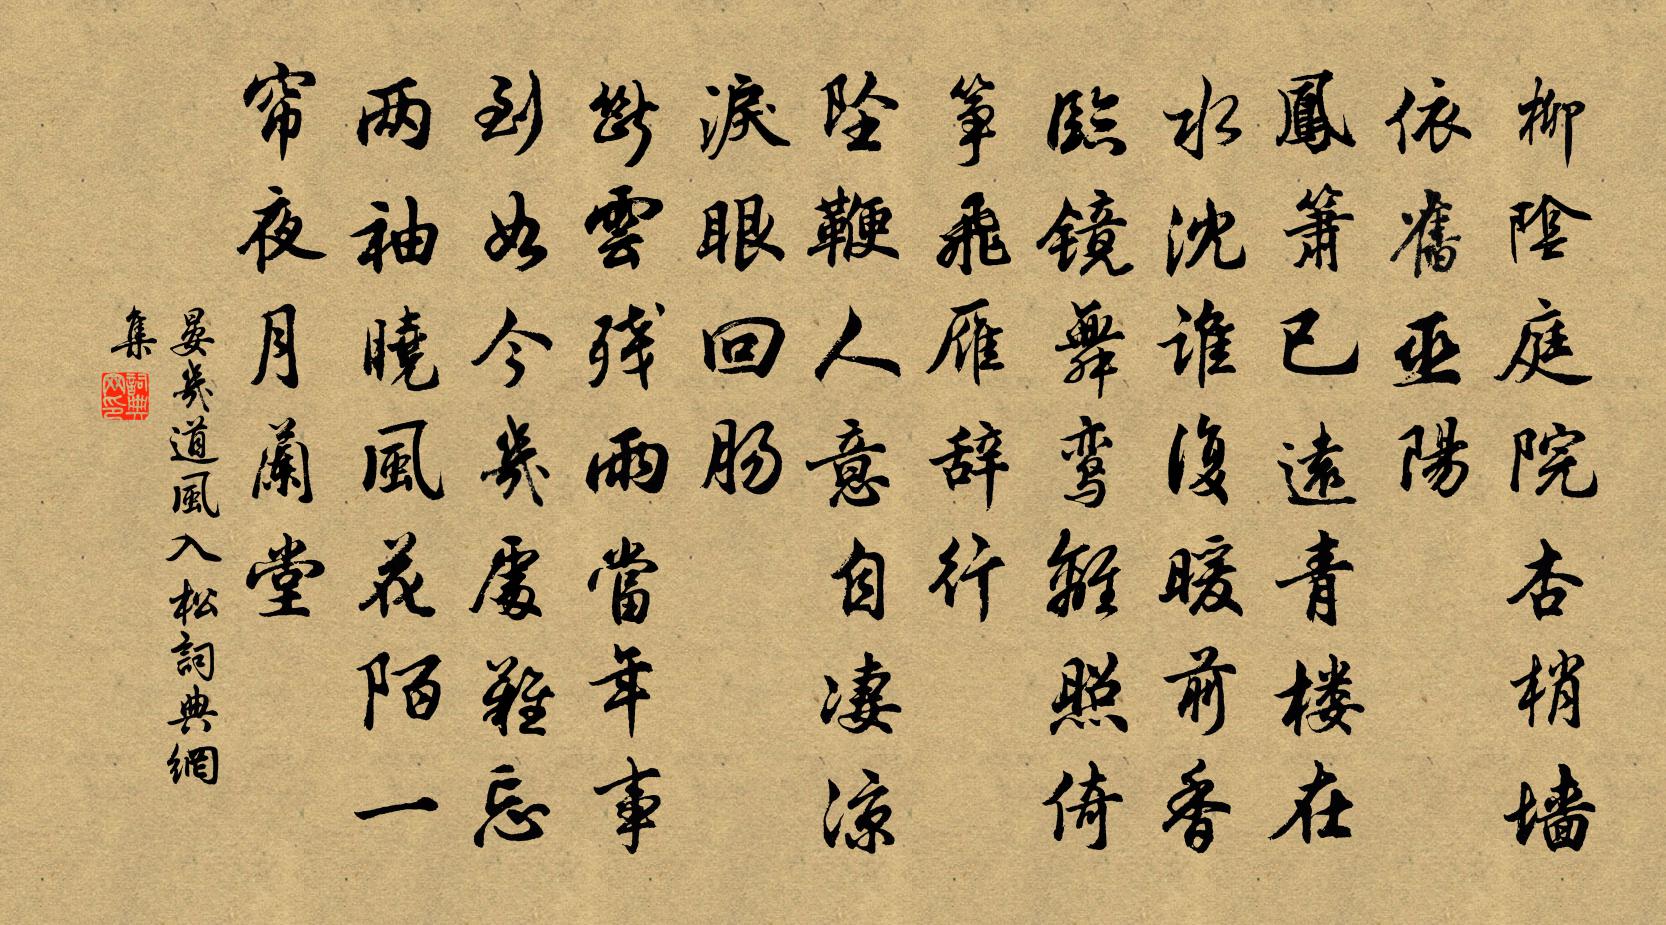 柳陰庭院杏梢墙
依舊巫陽
鳳簫已遠青楼在
水沈谁復暖前香
臨镜舞鸾離照倚
筝飛雁辞行
坠鞭人意自凄涼
淚眼回肠
断雲残雨當年事
到如今幾處難忘
两袖曉風花陌一
帘夜月蘭堂
晏幾道風入松詞典網
集
詞典網印